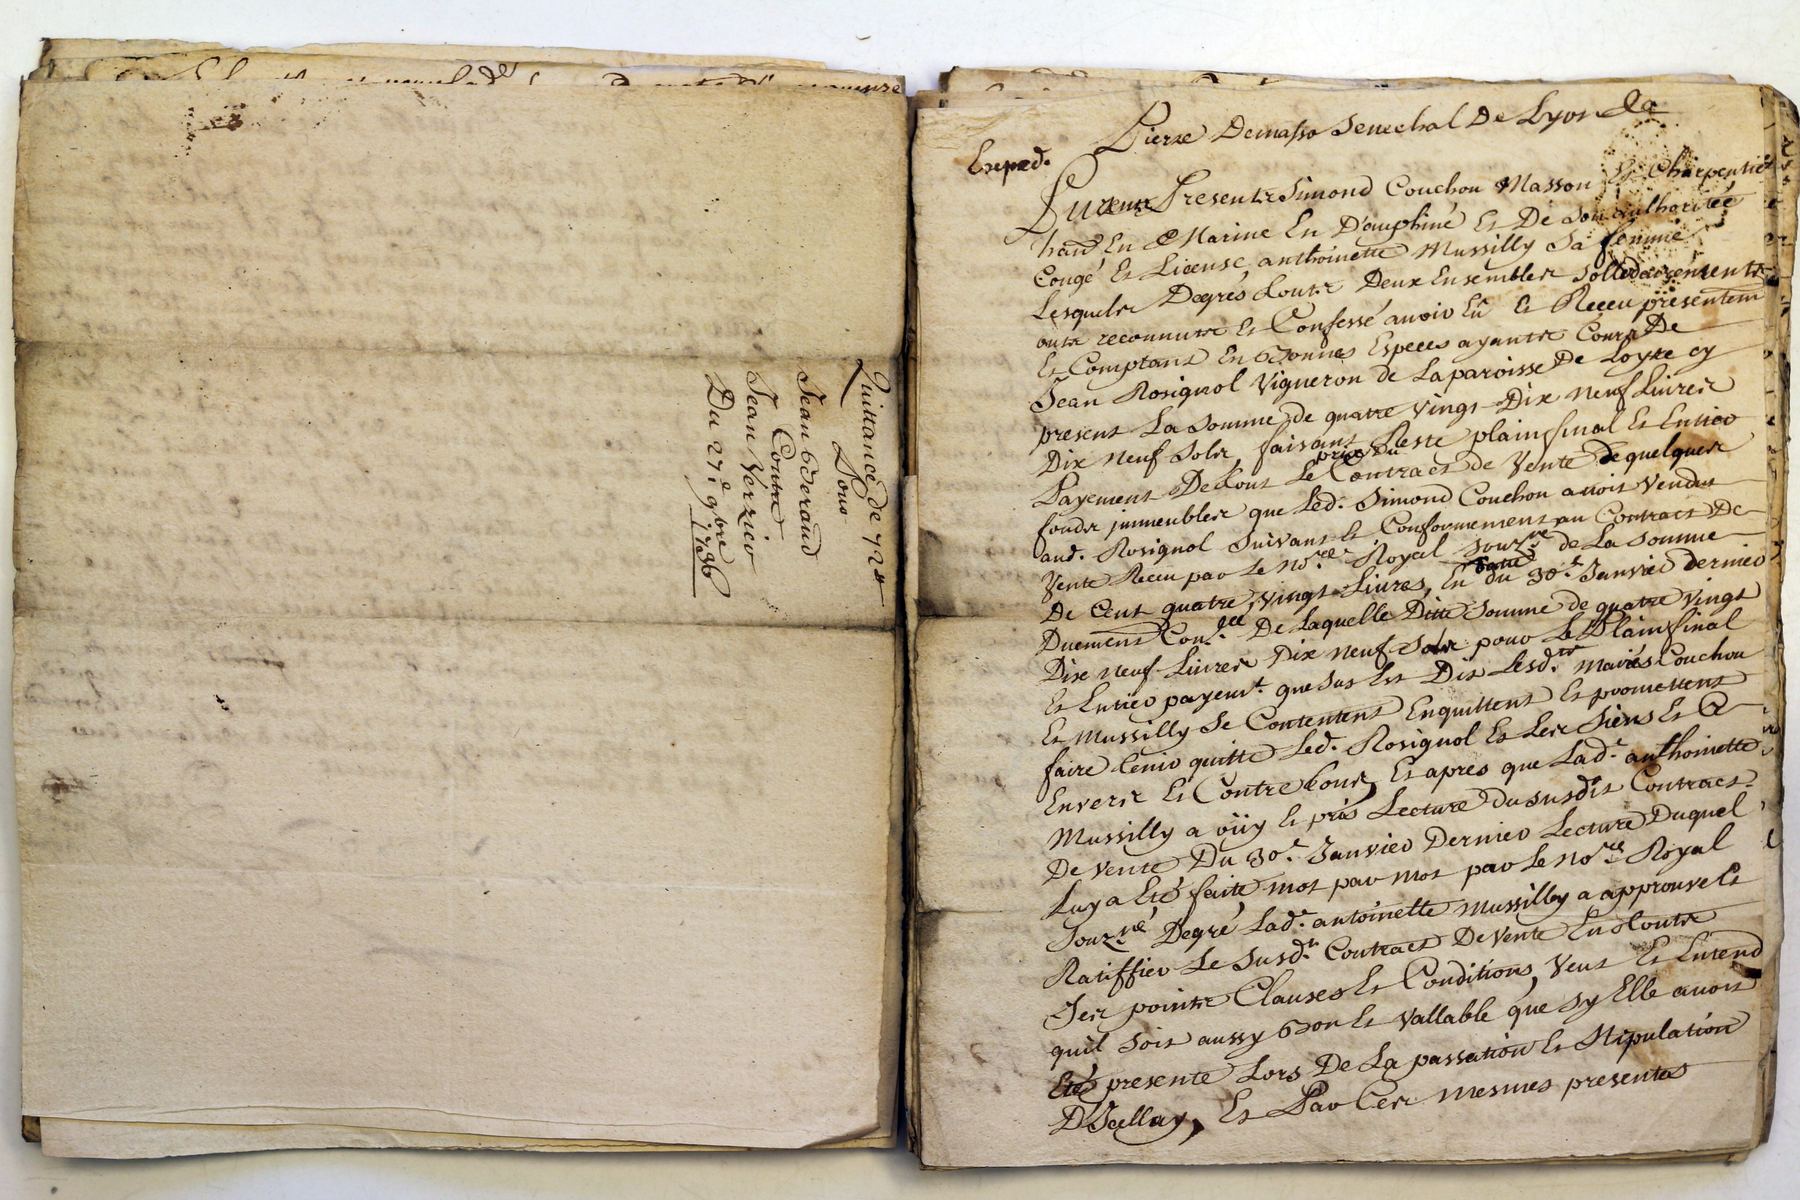 Quittance de 72 lt
Pour
Jean Beraud
Contre
Jean Verzieo
Du 27e 9bre 1736
Pierre Demasso Senechal De Lyon &a
Exped.
Furent Presents Simond Couchou Masson Et Charpentie
En Marine En Dauphiné Et De Son authorité
Congé Et License anthoinette Mussilly Sa femme
Lesquels Degrés touts Deux Ensembles Sollidairements
onts reconnuts Et Confessé avoir Eû Et Receu presentem
Et Comptant En Bonnes Especes ayants Cours De
Jean Rosignol Vigneron de La paroisse De Loyre cy
present La Somme de quatre Vingt Dix neuf Livres
Dix neuf Sols, faisant Reste plain final Et Entier
prix du
Payement De tout Le Contract de Vente de quelques
fonds jmmeubles que Led. Simond Couchou avoit Vendus
aud. Rosignol Suivant Et Conformement au Contract De
Vente Receu par Le nore Royal Souzne de La Somme
De Cent quatre Vingt Livres, En datte du 30e Janvier dernier
Duement Conlee De Laquelle Ditte Somme de quatre Vingt
Dix neuf Livres Dix neuf Sols pour Le Plain final
Et Entier payemt. que Sus Est Dit Lesdts mariés Couchou
Et Mussilly Se Contentent Enquittent Et promettent
faire tenir quitte Led. Rosignol Et Les Siens Et Ce
Envers Et Contre tous, Et apres que Lad. anthoinette
Mussilly a oüy Et pris Lecture du susdit Contract
De Vente Du 30e Janvier Dernier Lecture Duquel
Luy a Eté faite mot par mot par Le Nore Royal
Souzné, Degré Lad. antoinette Mussilly a approuve Et
Ratiffier Le Susdt. Contract De Vente En touts
Ses points Clauses Et Conditions, Veut Et Entend
quil Soit aussy Bon Et Vallable que Sy Elle avoit
Eté presente Lors De La passation Et Stipulation
D'Jcelluy, Et Par Ces mesmes presentes